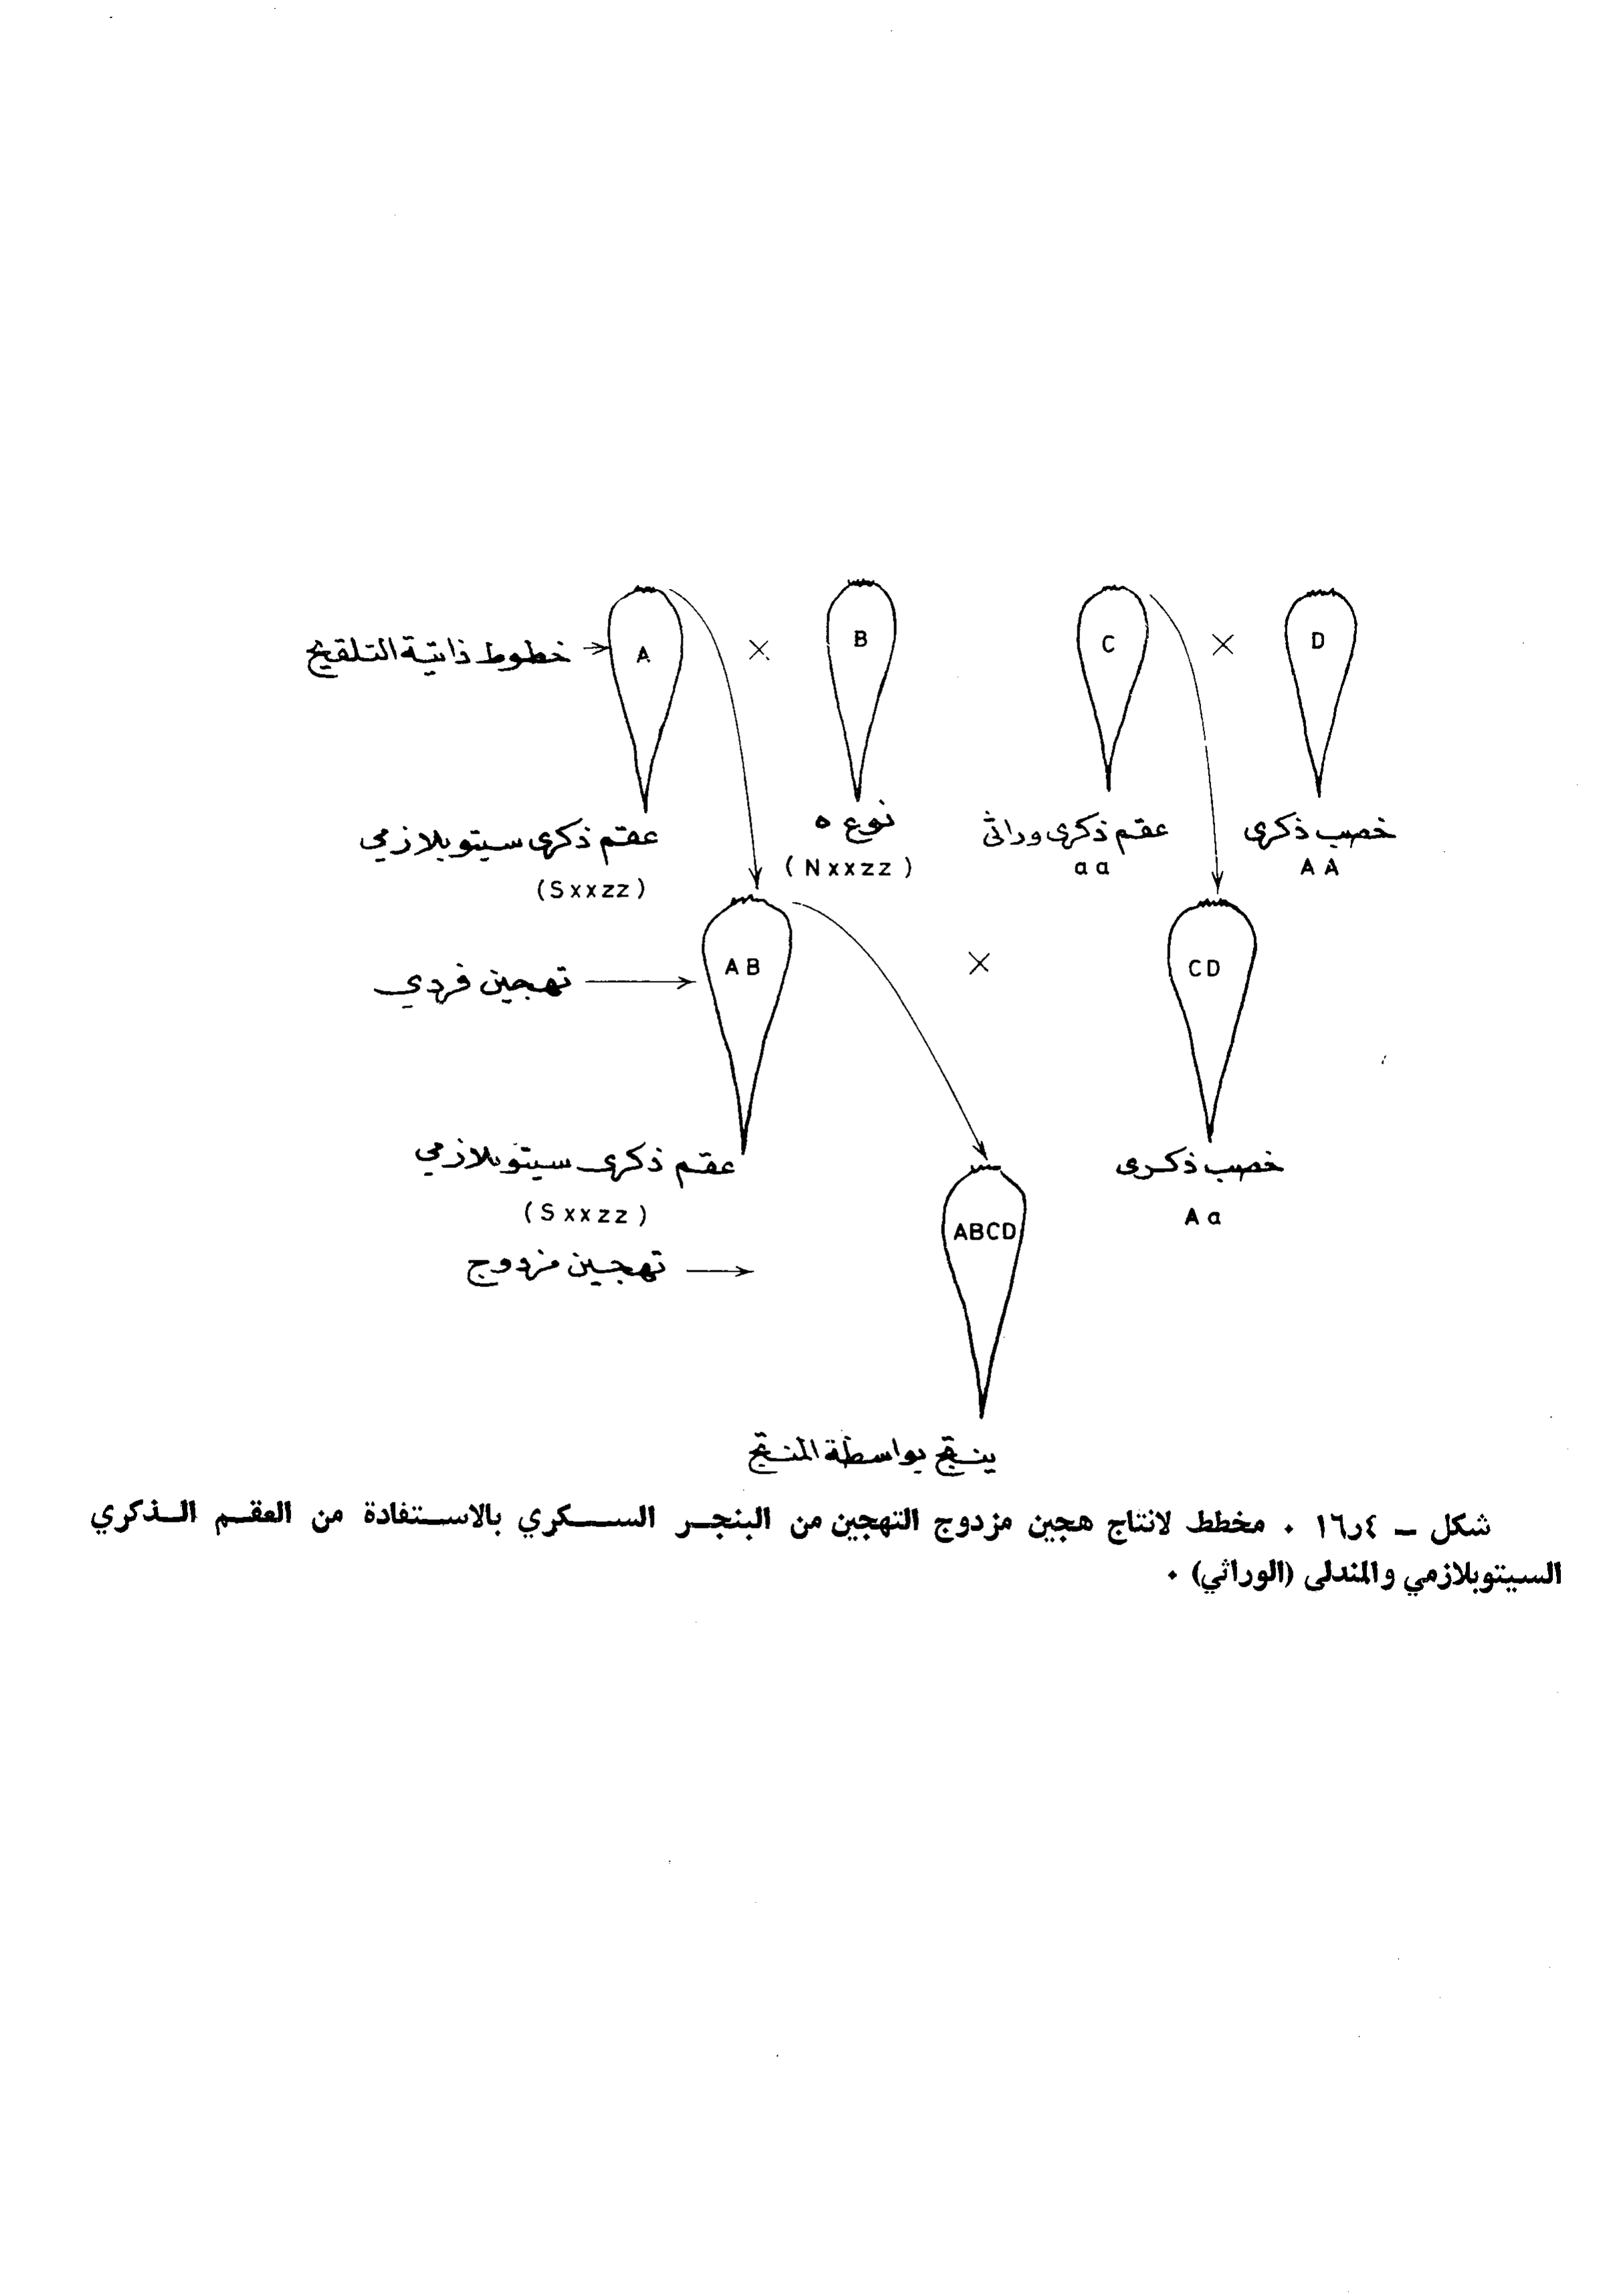 خطوط ذاتية التلقيح
A × B
C × D
عقم ذكرى سيتوبلازمي
(Sxxzz)
نوع ه
(Nxxzz)
عقم ذكرى وراثى
aa
خصب ذكرى
AA
تهجين فردي
AB × CD
عقم ذكرى سيتوبلازمي
(Sxxzz)
خصب ذكرى
Aa
تهجين مزدوج
ABCD
ينتج بواسطة المنتج
شكل – ٤ر١٦ . مخطط لانتاج هجين مزدوج التهجين من البنجر السكري بالاستفادة من العقم الذكري
السيتوبلازمي والمندلى (الوراثي) .